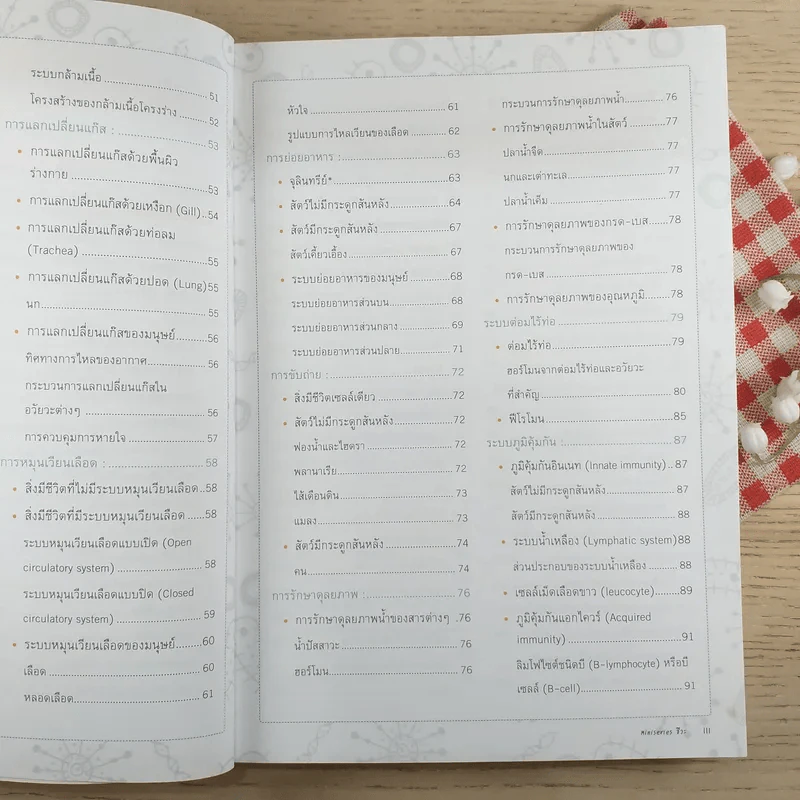 ระบบกล้ามเนื้อ 51
โครงสร้างของกล้ามเนื้อโครงร่าง 52
การแลกเปลี่ยนแก๊ส : 53
• การแลกเปลี่ยนแก๊สด้วยพื้นผิว
ร่างกาย 53
• การแลกเปลี่ยนแก๊สด้วยเหงือก (Gill) 54
• การแลกเปลี่ยนแก๊สด้วยท่อลม
(Trachea) 55
• การแลกเปลี่ยนแก๊สด้วยปอด (Lung) 55
นก 55
• การแลกเปลี่ยนแก๊สของมนุษย์ 56
ทิศทางการไหลของอากาศ 56
กระบวนการแลกเปลี่ยนแก๊สใน
อวัยวะต่างๆ 56
การควบคุมการหายใจ 57
การหมุนเวียนเลือด : 58
• สิ่งมีชีวิตที่ไม่มีระบบหมุนเวียนเลือด 58
• สิ่งมีชีวิตที่มีระบบหมุนเวียนเลือด 58
ระบบหมุนเวียนเลือดแบบเปิด (Open
circulatory system) 58
ระบบหมุนเวียนเลือดแบบปิด (Closed
circulatory system) 59
• ระบบหมุนเวียนเลือดของมนุษย์ 60
เลือด 60
หลอดเลือด 61
หัวใจ 61
รูปแบบการไหลเวียนของเลือด 62
การย่อยอาหาร : 63
• จุลินทรีย์* 63
• สัตว์ไม่มีกระดูกสันหลัง 64
• สัตว์มีกระดูกสันหลัง 67
สัตว์เคี้ยวเอื้อง 67
• ระบบย่อยอาหารของมนุษย์ 68
ระบบย่อยอาหารส่วนบน 68
ระบบย่อยอาหารส่วนกลาง 69
ระบบย่อยอาหารส่วนปลาย 71
การขับถ่าย : 72
• สิ่งมีชีวิตเซลล์เดียว 72
• สัตว์ไม่มีกระดูกสันหลัง 72
ฟองน้ำและไฮดรา 72
พลานาเรีย 72
ไส้เดือนดิน 73
แมลง 73
• สัตว์มีกระดูกสันหลัง 74
คน 74
การรักษาดุลยภาพ : 76
• การรักษาดุลยภาพน้ำของสารต่างๆ 76
น้ำปัสสาวะ 76
ฮอร์โมน 76
กระบวนการรักษาดุลยภาพน้ำ 76
• การรักษาดุลยภาพน้ำในสัตว์ 77
ปลาน้ำจืด 77
นกและเต่าทะเล 77
ปลาน้ำเค็ม 77
• การรักษาดุลยภาพของกรด-เบส 78
กระบวนการรักษาดุลยภาพของ
กรด-เบส 78
• การรักษาดุลยภาพของอุณหภูมิ 78
ระบบต่อมไร้ท่อ 79
• ต่อมไร้ท่อ 79
ฮอร์โมนจากต่อมไร้ท่อและอวัยวะ
ที่สำคัญ 80
• ฟีโรโมน 85
ระบบภูมิคุ้มกัน : 87
• ภูมิคุ้มกันอินเนท (Innate immunity) 87
สัตว์ไม่มีกระดูกสันหลัง 87
สัตว์มีกระดูกสันหลัง 88
• ระบบน้ำเหลือง (Lymphatic system) 88
ส่วนประกอบของระบบน้ำเหลือง 88
• เซลล์เม็ดเลือดขาว (leucocyte) 89
• ภูมิคุ้มกันแอกไควร์ (Acquired
immunity) 91
ลิมโฟไซต์ชนิดบี (B-lymphocyte) หรือบี
เซลล์ (B-cell) 91
Miniseries ชีวะ III